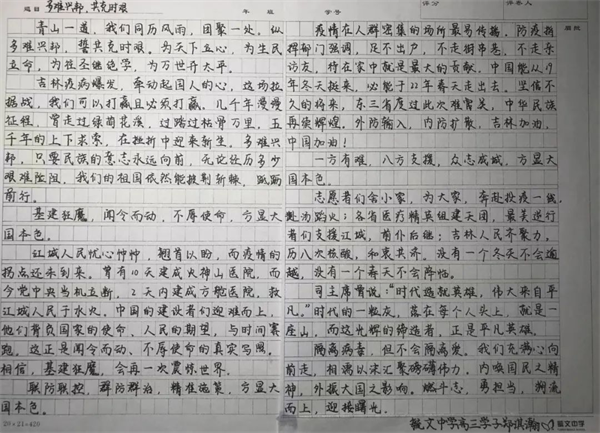 题目 多难兴邦，共克时艰
年 级 学号
评分 评卷人
青山一道，我们同历风雨，团聚一处，纵
多难兴邦，誓共克时艰。为天下立心，为生民
立命，为往圣继绝学，为万世开太平。
吉林疫病爆发，牵动起国人的心，这场拉
据战，我们可以打赢且必须打赢。几千年漫漫
征程，曾走过绿荫花溪，过踏过枯骨万里，五
千年的上下求索，在挫折中迎来新生，多难兴
邦，只要民族的意志永远向前，无论经历多少
艰难险阻，我们的祖国依然能披荆斩棘，砥砺
前行。
基建狂魔，闻令而动，不辱使命，方显大
国本色。
江城人民忧心忡忡，翘首以盼，而疫情的
拐点还未到来。曾有10天建成火神山医院，而
今党中央当机立断，2天内建成方舱医院，救
江城人民于水火。中国的建设者们迎难而上，
他们背负国家的使命、人民的期望，与时间赛
跑，这正是闻令而动、不辱使命的真实写照。
相信，基建狂魔，会再一次震惊世界。
联防联控，群防群治，精准施策，方显大
国本色。
20×21=420
疫情在人群密集的场所最易传播，防疫指
挥部门强调，足不出户，不走街串巷，不走亲
访友，待在家中就是最大的贡献，中国能从19
年冬天挺来，必能于22年春天走出去。坚信不
久的将来，东三省度过此次难窘关，中华民族
再续辉煌。外防输入，内防扩散，吉林加油，
中国加油！
一方有难，八方支援，众志成城，方显大
国本色。
志愿者们舍小家，为大家，奔赴投疫一线，
赴汤蹈火；各省医疗精英组建天团，最美逆行
者们支援江城，前仆后继；吉林人民齐聚力，
历八次核酸，和衷共济。没有一个冬天不会逾
越，没有一个春天不会降临。
习主席曾说：“时代造就英雄，伟大来自平
凡。”时代的一粒灰，落在每个人头上，就是一
座山，而这光辉的缔造者，正是平凡英雄。
隔离病毒，但不会隔离爱。我们充满心向
前走，相濡以沫汇聚磅礴伟力，内唤国民之精
神，外振大国之影响。燃斗志，勇担当，拥流
而上，迎接曙光。
毓文中学高三学子郑琪瀚
毓文中学